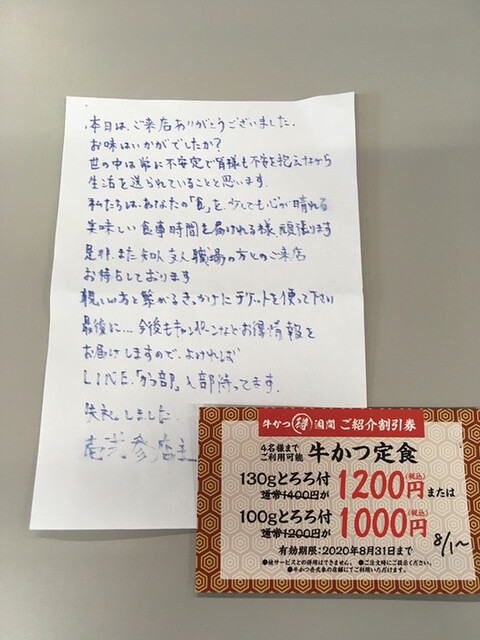 本日は、ご来店ありがとうございました。
お味はいかがでしたか?
世の中は常に不安定で皆様も不安を抱えながら
生活を送られていることと思います。
私たちは、あなたの「食」を、少しでも心が晴れる
美味しい食事時間を届けれる様、頑張ります
是非、また知人、友人、職場の方とのご来店
お待ちしております
親しい方と繋がるきっかけにチケットを使って下さい
最後に...今後もキャンペーンなどお得情報を
お届けしますので、よければ
LINE.「かつ部」入部待ってます。
失礼しました。
壱弐参店主
牛かつ 得 週間 ご紹介割引券
4名様まで
ご利用可能 牛かつ定食
130gとろろ付
通常1400円が 1200円(税込)または
100gとろろ付
通常1200円が 1000円(税込)
8/1〜
有効期限:2020年8月31日まで
●他サービスとの併用はできません。 ●ご注文時にご提示ください。
●牛かつ壱弐参の店舗にてご利用いただけます。